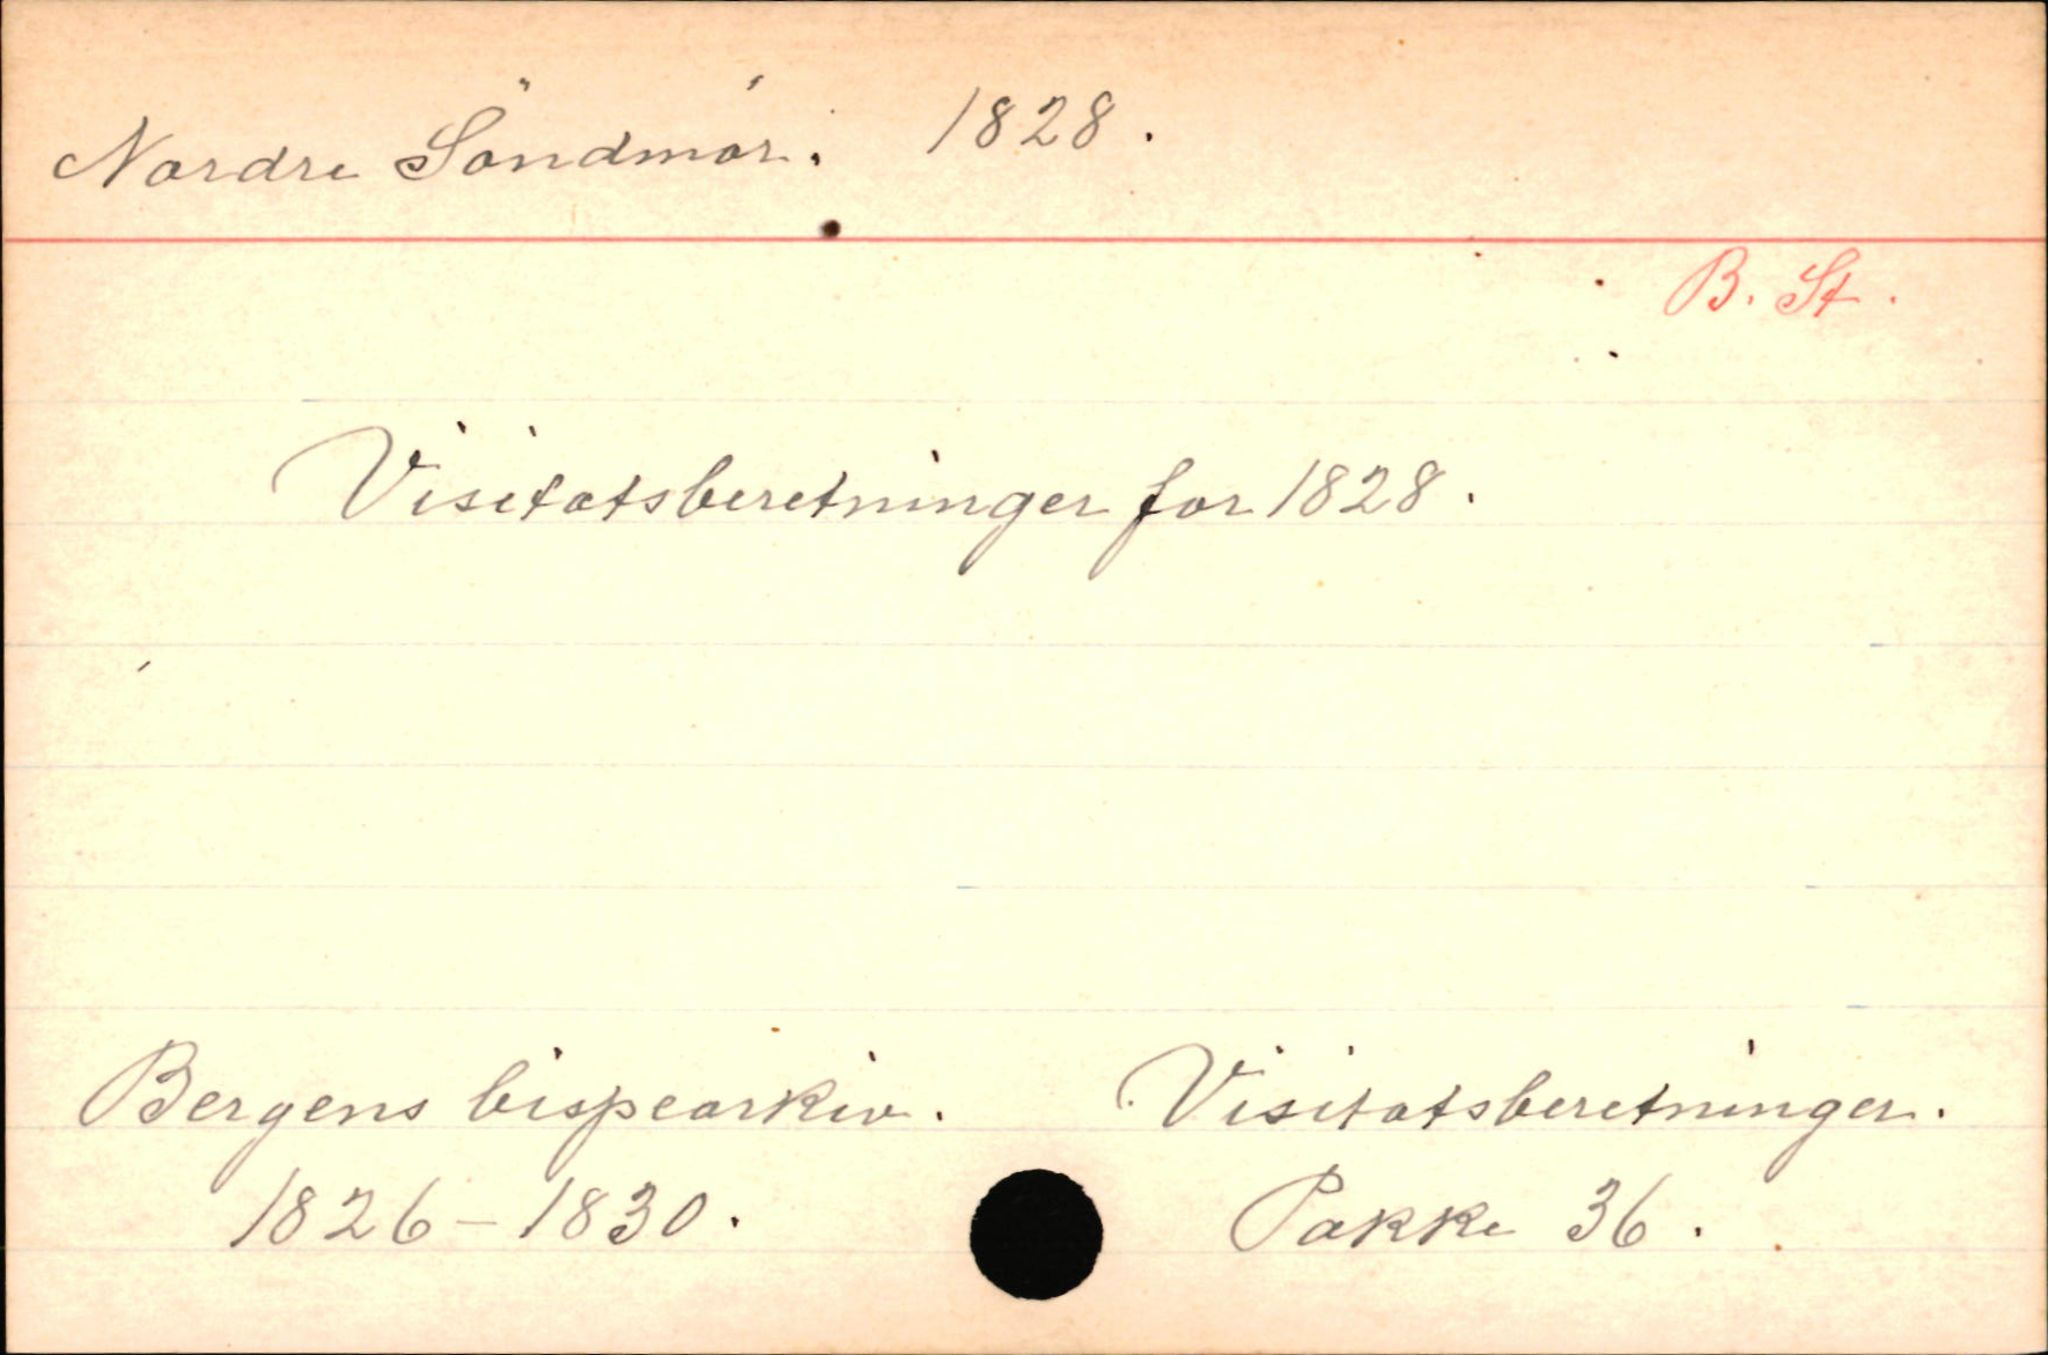 Nordre Söndmör. 1828.
B. St.
Visitatsberetninger for 1828.
Bergens bispearkiv. Visitatsberetninger.
1826-1830. Pakke 36.